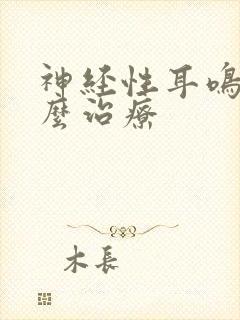 神経性耳鳴
麼治療
木長